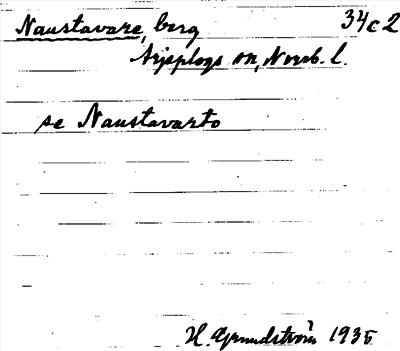 Naustavare, berg 34c2
Arjeplogs sn, Norrb. l.
se Naustavarto
H. Grundström 1935